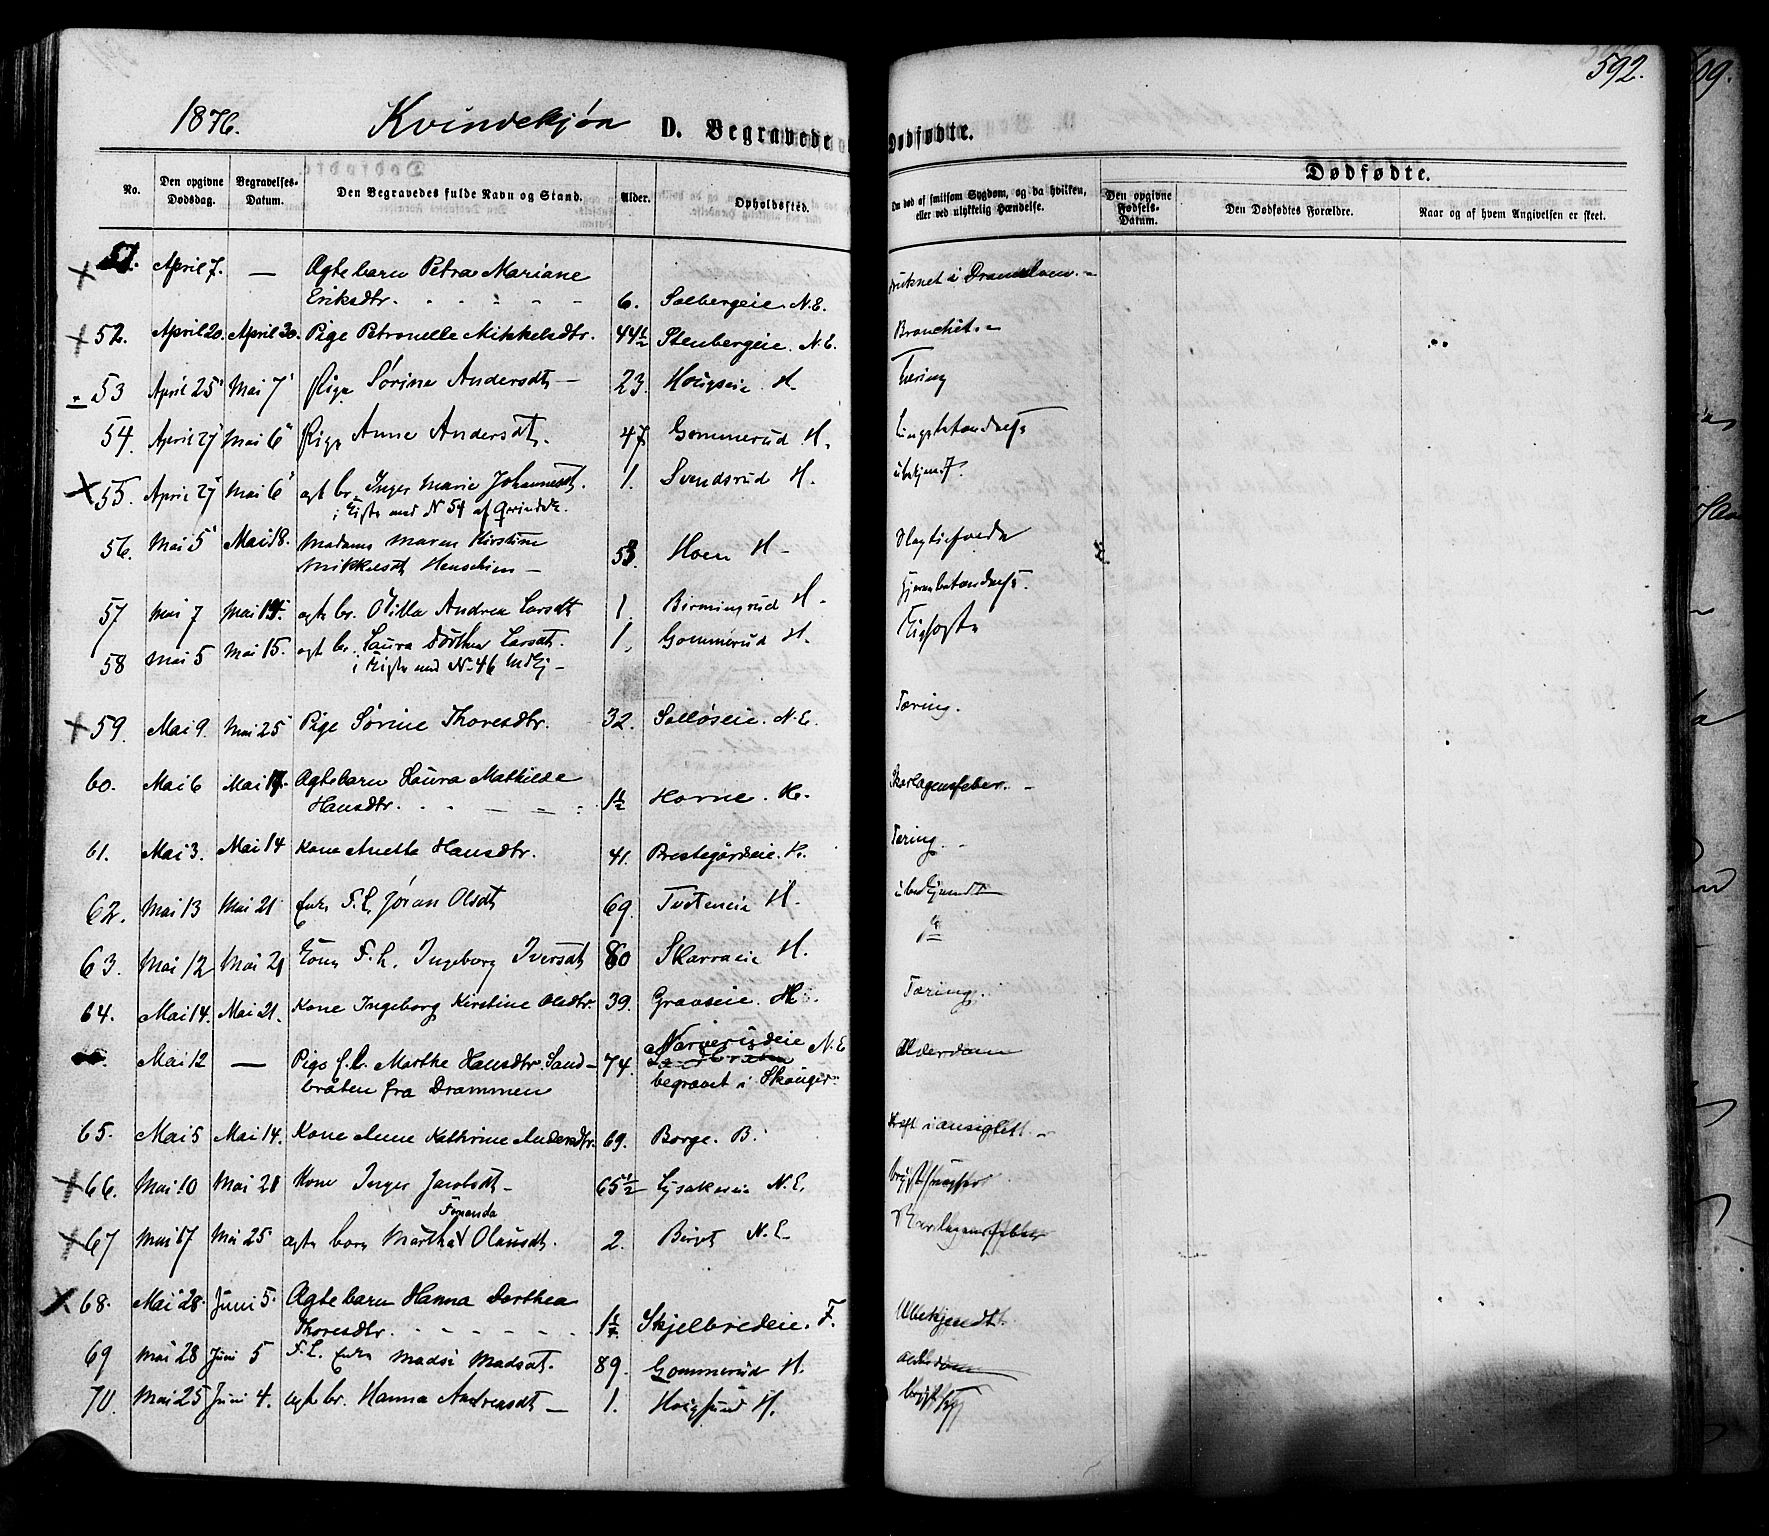 592.
1876. Kvindekjøn D. Begravede o
Dødfødte.
Dødfødte.
No. Den opgivne Dødsdag. Begravelses-Datum. Den Begravedes fulde Navn og Stand. Alder. Opholdssted.
Om død af smitsom Sygdom, og da hvilken, eller ved ulykkelig Hændelse. Den opgivne Fødsels-Datum. Den Dødfødtes Forældre. Naar og af hvem Angivelsen er skeet.
51. April 7. — Ægtebarn Petra Mariane
Eriksdtr. 6. Solbergeie. N.E. druknet i Dramselven.
52. April 20. April 30. Pige Petronelle Mikkelsdtr. 44½ Stenbergeie. N.E. Bronchit
53 April 25 Mai 7 Pige Sørine Andersdt 23. Hougseie H. Tæring
54. April 27 Mai 6 Pige Anne Andersdt. 47 Gommerud H.
55. April 27 Mai 6 ægt br. Inger Marie Johannesdt. 1. Svendsrud H. ubekjendt
i Kiste med N 54
56. Mai 5 Mai 18. Madame Maren Kirstine
Mikkelsdt Hoen H
57 Mai 7 Mai 15. ægte br. Otilla Andrea Larsdt 1. Birmingrud H. Hjernebetændelse
58 Mai 5 Mai 15. ægt br. Laura Dorthea Larsdt. 1. Gommerud H.
i Kiste med N. 46
59. Mai 9. Mai 25 Pige Sørine Thoresdtr. 32. Solløseie. N.E. Tæring.
60. Mai 6 Mai 17. Ægtebarn Laura Mathilde
Hansdtr. 1½ Horne. H. Skarlagensfeber.
61. Mai 3. Mai 14 Kone Anette Hansdtr. 41. Prestegårdeie. H. Tæring.
62. Mai 13 Mai 21 Enke F.L. Jøran Olsdt 69. Tveteneie H. ubekjendt
63. Mai 12 Mai 21 Kone F.L. Ingeborg Iversdt 80 Skarraeie H.
64. Mai 14. Mai 21. Kone Ingeborg Kirstine Olsdtr. 39. Gravseie. H. Tæring.
Mai 12 — Pige f.l. Marthe Hansdtr. Sand- 74. Narverudeie N.E. Alderdom
bråten fra Drammen begravet i Skouger
65. Mai 5 Mai 14. Kone Anne Kathrine Andersdtr. 69. Borge. B. Kræft i ansigtet.
66. Mai 10 Mai 21 Kone Inger Jacobsdt 65½ Lysakereie N.E.
67 Mai 17 Mai 25 ægte barn Martha Olausdt. 2. N.E. Skarlagensfeber
68. Mai 28. Juni 5. Ægtebarn Hanna Dorthea
Thoresdtr. Skjelbredeie. F. Ubekjendt.
69 Mai 28 Juni 5 F.L. Enke Madsi Madsdt. 89. Gommerud H. Alderdom
70. Mai 25 Juni 4. ægt br. Hanna Andreasdt — 1. Hougsund H.